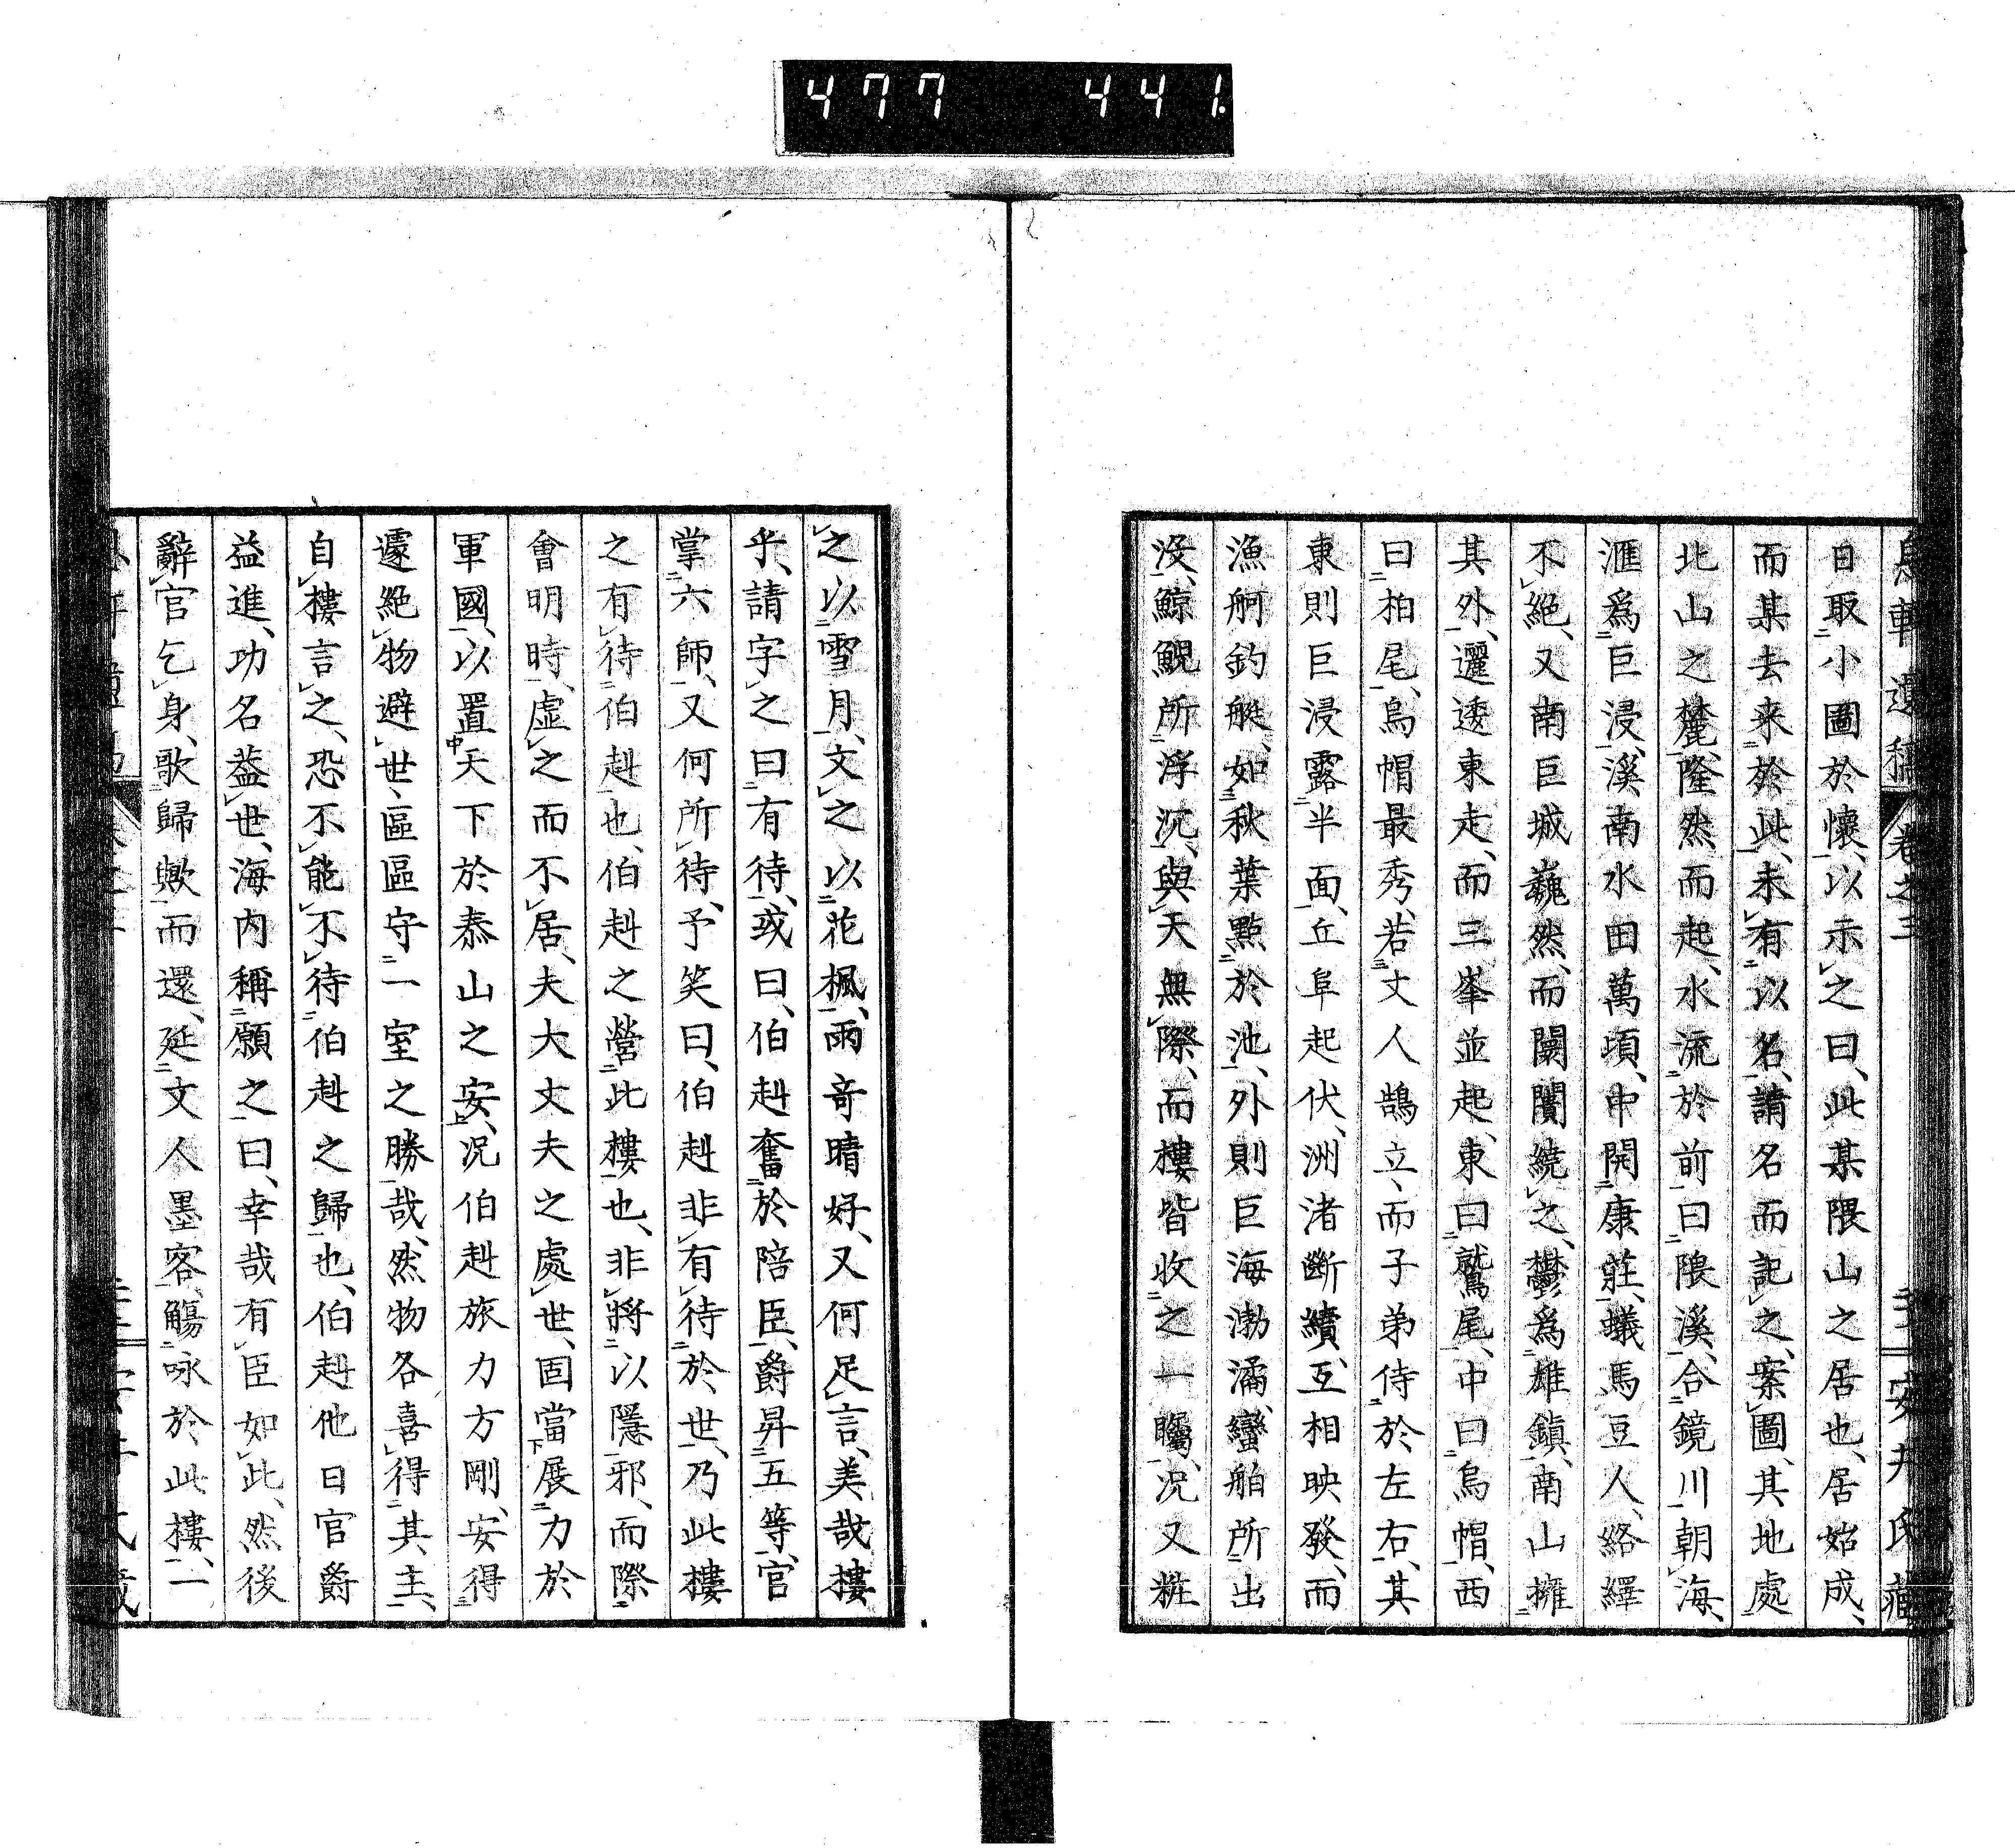 477 441
日取小圖於懷、以示之曰、此某隈山之居也、居始成、
而某去来於此、未有以名、請名而記之、案圖、其地處
北山之麓、隆然而起、水流於前曰隈溪、合鏡川朝海、
滙爲巨浸、溪南水田萬頃、中開康莊、蟻馬豆人、絡繹
不絕、又南巨城巍然、而闤闠繞之、鬱爲雄鎮、南山擁
其外、邐逶東走、而三峯並起、東曰鷲尾、中曰烏帽、西
曰柏尾、烏帽最秀、若丈人鵠立、而子弟侍於左右、其
東則巨浸露半面、丘阜起伏、洲渚斷續、互相映發、而
漁舸釣艇、如秋葉點於池、外則巨海渤潏、蠻舶所出
沒、鯨鯢所浮沉、與天無際、而樓皆收之一矚、况又粧
之以雪月、文之以花楓、雨奇晴好、又何足言、美哉樓
乎、請字之曰有待、或曰、伯赳奮於陪臣、爵昇五等、官
掌六師、又何所待、予笑曰、伯赳非有待於世、乃此樓
之有待伯赳也、伯赳之營此樓也、非將以隱邪、而際
會明時、虛之而不居、夫大丈夫之處世、固當展力於
軍國、以置天下於泰山之安、况伯赳旅力方剛、安得
遽絕物避世、區區守一室之勝哉、然物各喜得其主、
自樓言之、恐不能不待伯赳之歸也、伯赳他日官爵
益進、功名益世、海内稱願之曰、幸哉有臣如此、然後
辭官乞身、歌歸歟而還、延文人墨客、觴咏於此樓、一
卷之三
安井氏藏